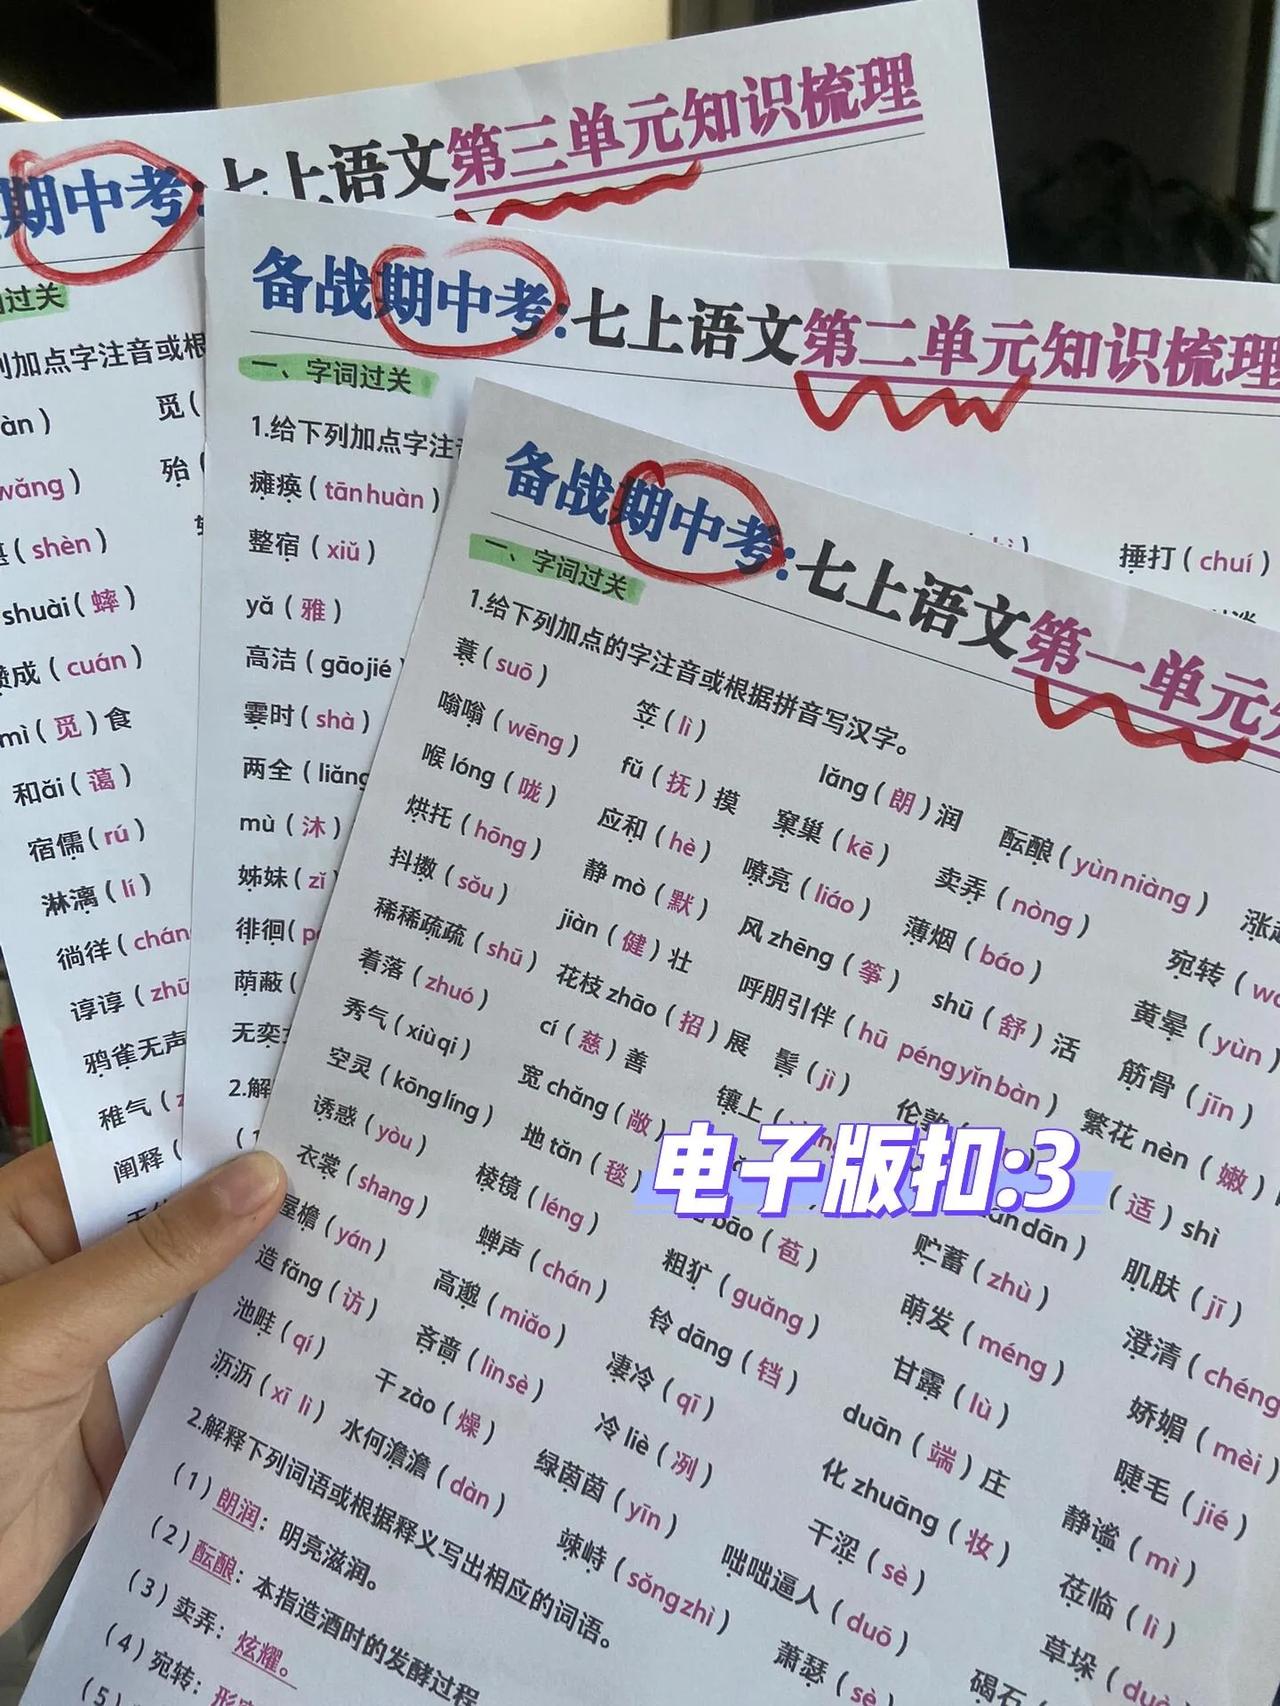 期中考:七上语文第三单元知识梳理
过关
加点字注音或根
àn）
觅（
wǎng）
殆（
shèn）
shuài（蟀）
成（cuán）
mì（觅）食
和ǎi（蔼）
宿儒（rú）
淋漓（lí）
徜徉（chán
谆谆（zhū
鸦雀无声
稚气（
阐释（
备战期中考:七上语文第二单元知识梳理
一、字词过关
1.给下列加点字注
瘫痪（tān huàn）
捶打（chuí）
整宿（xiǔ）
yǎ（雅）
高洁（gāo jié
霎时（shà）
两全（liǎng
mù（沐）
姊妹（zǐ）
徘徊（p
荫蔽（
无奕
2.解
备战期中考:七上语文第一单元
一、字词过关
1.给下列加点的字注音或根据拼音写汉字。
蓑（suō） 笠（lì） lǎng（朗）润 酝酿（yùn niàng） 涨
嗡嗡（wēng） fǔ（抚）摸 窠巢（kē） 卖弄（nòng） 宛转（w
喉lóng（咙） 应和（hè） 嘹亮（liáo） 薄烟（báo） 黄晕（yùn）
烘托（hōng） 静mò（默） 风zhēng（筝） shū（舒）活 筋骨（jīn）
抖擞（sǒu） jiàn（健）壮 呼朋引伴（hū péng yǐn bàn） 繁花nèn（嫩）
稀稀疏疏（shū） 花枝zhāo（招）展 髻（jì） 伦敦（ （适）shì
着落（zhuó） cí（慈）善 镶上（ dān） 肌肤（jī）
秀气（xiù qi） 宽chǎng（敞） 贮蓄（zhù） 澄清（chéng
空灵（kōng líng） 地tǎn（毯） bāo（苞） 萌发（méng） 娇媚（mèi）
诱惑（yòu） 棱镜（léng） 粗犷（guǎng） 甘露（lù） 睫毛（jié）
衣裳（shang） 蝉声（chán） 铃dāng（铛） duān（端）庄 静谧（mì）
屋檐（yán） 高邈（miǎo） 凄冷（qī） 化zhuāng（妆） 莅临（lì）
造fǎng（访） 吝啬（lìn sè） 冷liè（冽） 干涩（sè） 草垛（duò
池畦（qí） 干zào（燥） 绿茵茵（yīn） 咄咄逼人（duō） 碣石（
沥沥（xī lì） 水何澹澹（dàn） 竦峙（sǒng zhì） 萧瑟（sè）
2.解释下列词语或根据释义写出相应的词语。
（1）朗润：明亮滋润。
（2）酝酿：本指造酒时的发酵过程
（3）卖弄：炫耀。
（4）宛转：形
（5）
电子版扣:3